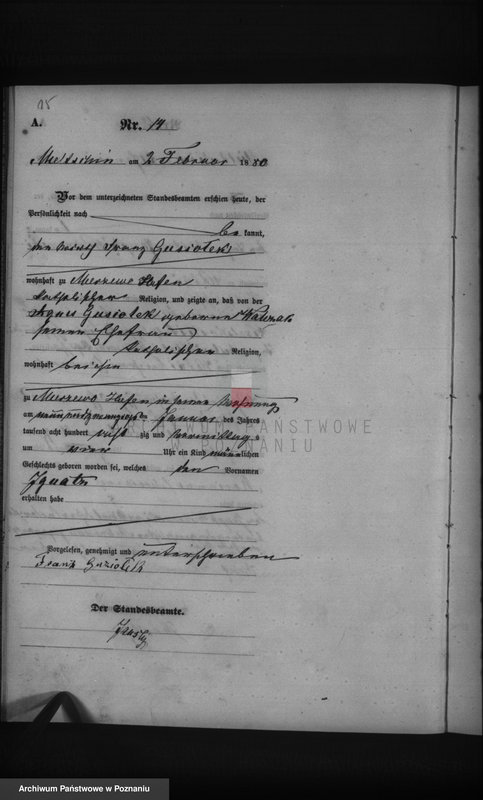 15
A.
Nr. 14
am 2 Februar 1880
Vor dem unterzeichneten Standesbeamten erschien heute, der
Persönlichkeit nach
be kannt,
den Wirth Franz Gusiolek
wohnhaft zu Murzewo Hofen
katholischer Religion, und zeigte an, daß von der
Agnes Gusiolek geborenen
seiner Ehefrau
katholischer Religion,
wohnhaft bei ihm
zu Murzewo Hofen in seiner Wohnung
am neun und zwanzigsten Januar des Jahres
tausend acht hundert acht zig und Vormittags
um Uhr ein Kind männlichen
Geschlechts geboren worden sei, welches den Vornamen
Ignatz
erhalten habe
Vorgelesen, genehmigt und unterschrieben
Frank Guziolek
Der Standesbeamte.
ARCHIWUM PAŃSTWOWE
W POZNANIU
Archiwum Państwowe w Poznaniu